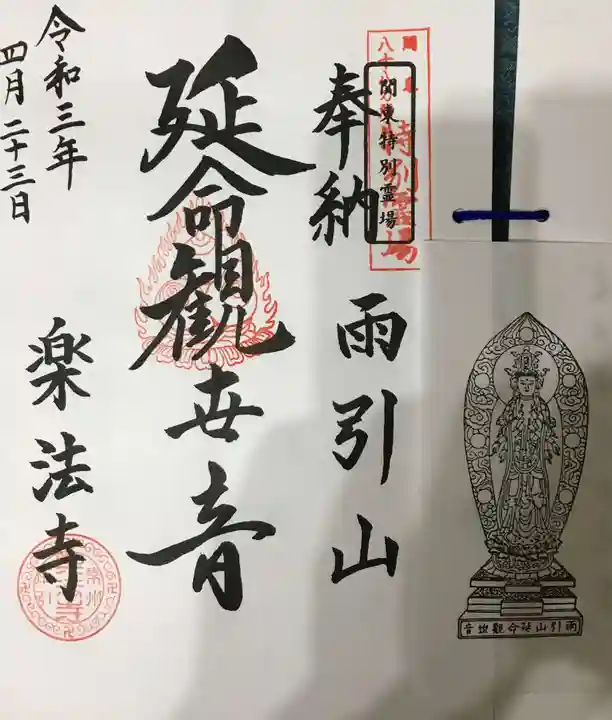 関東特別霊場
特別霊場
奉納 雨引山
延命観世音
令和三年
四月二十三日
楽法寺
雨引山延命觀世音